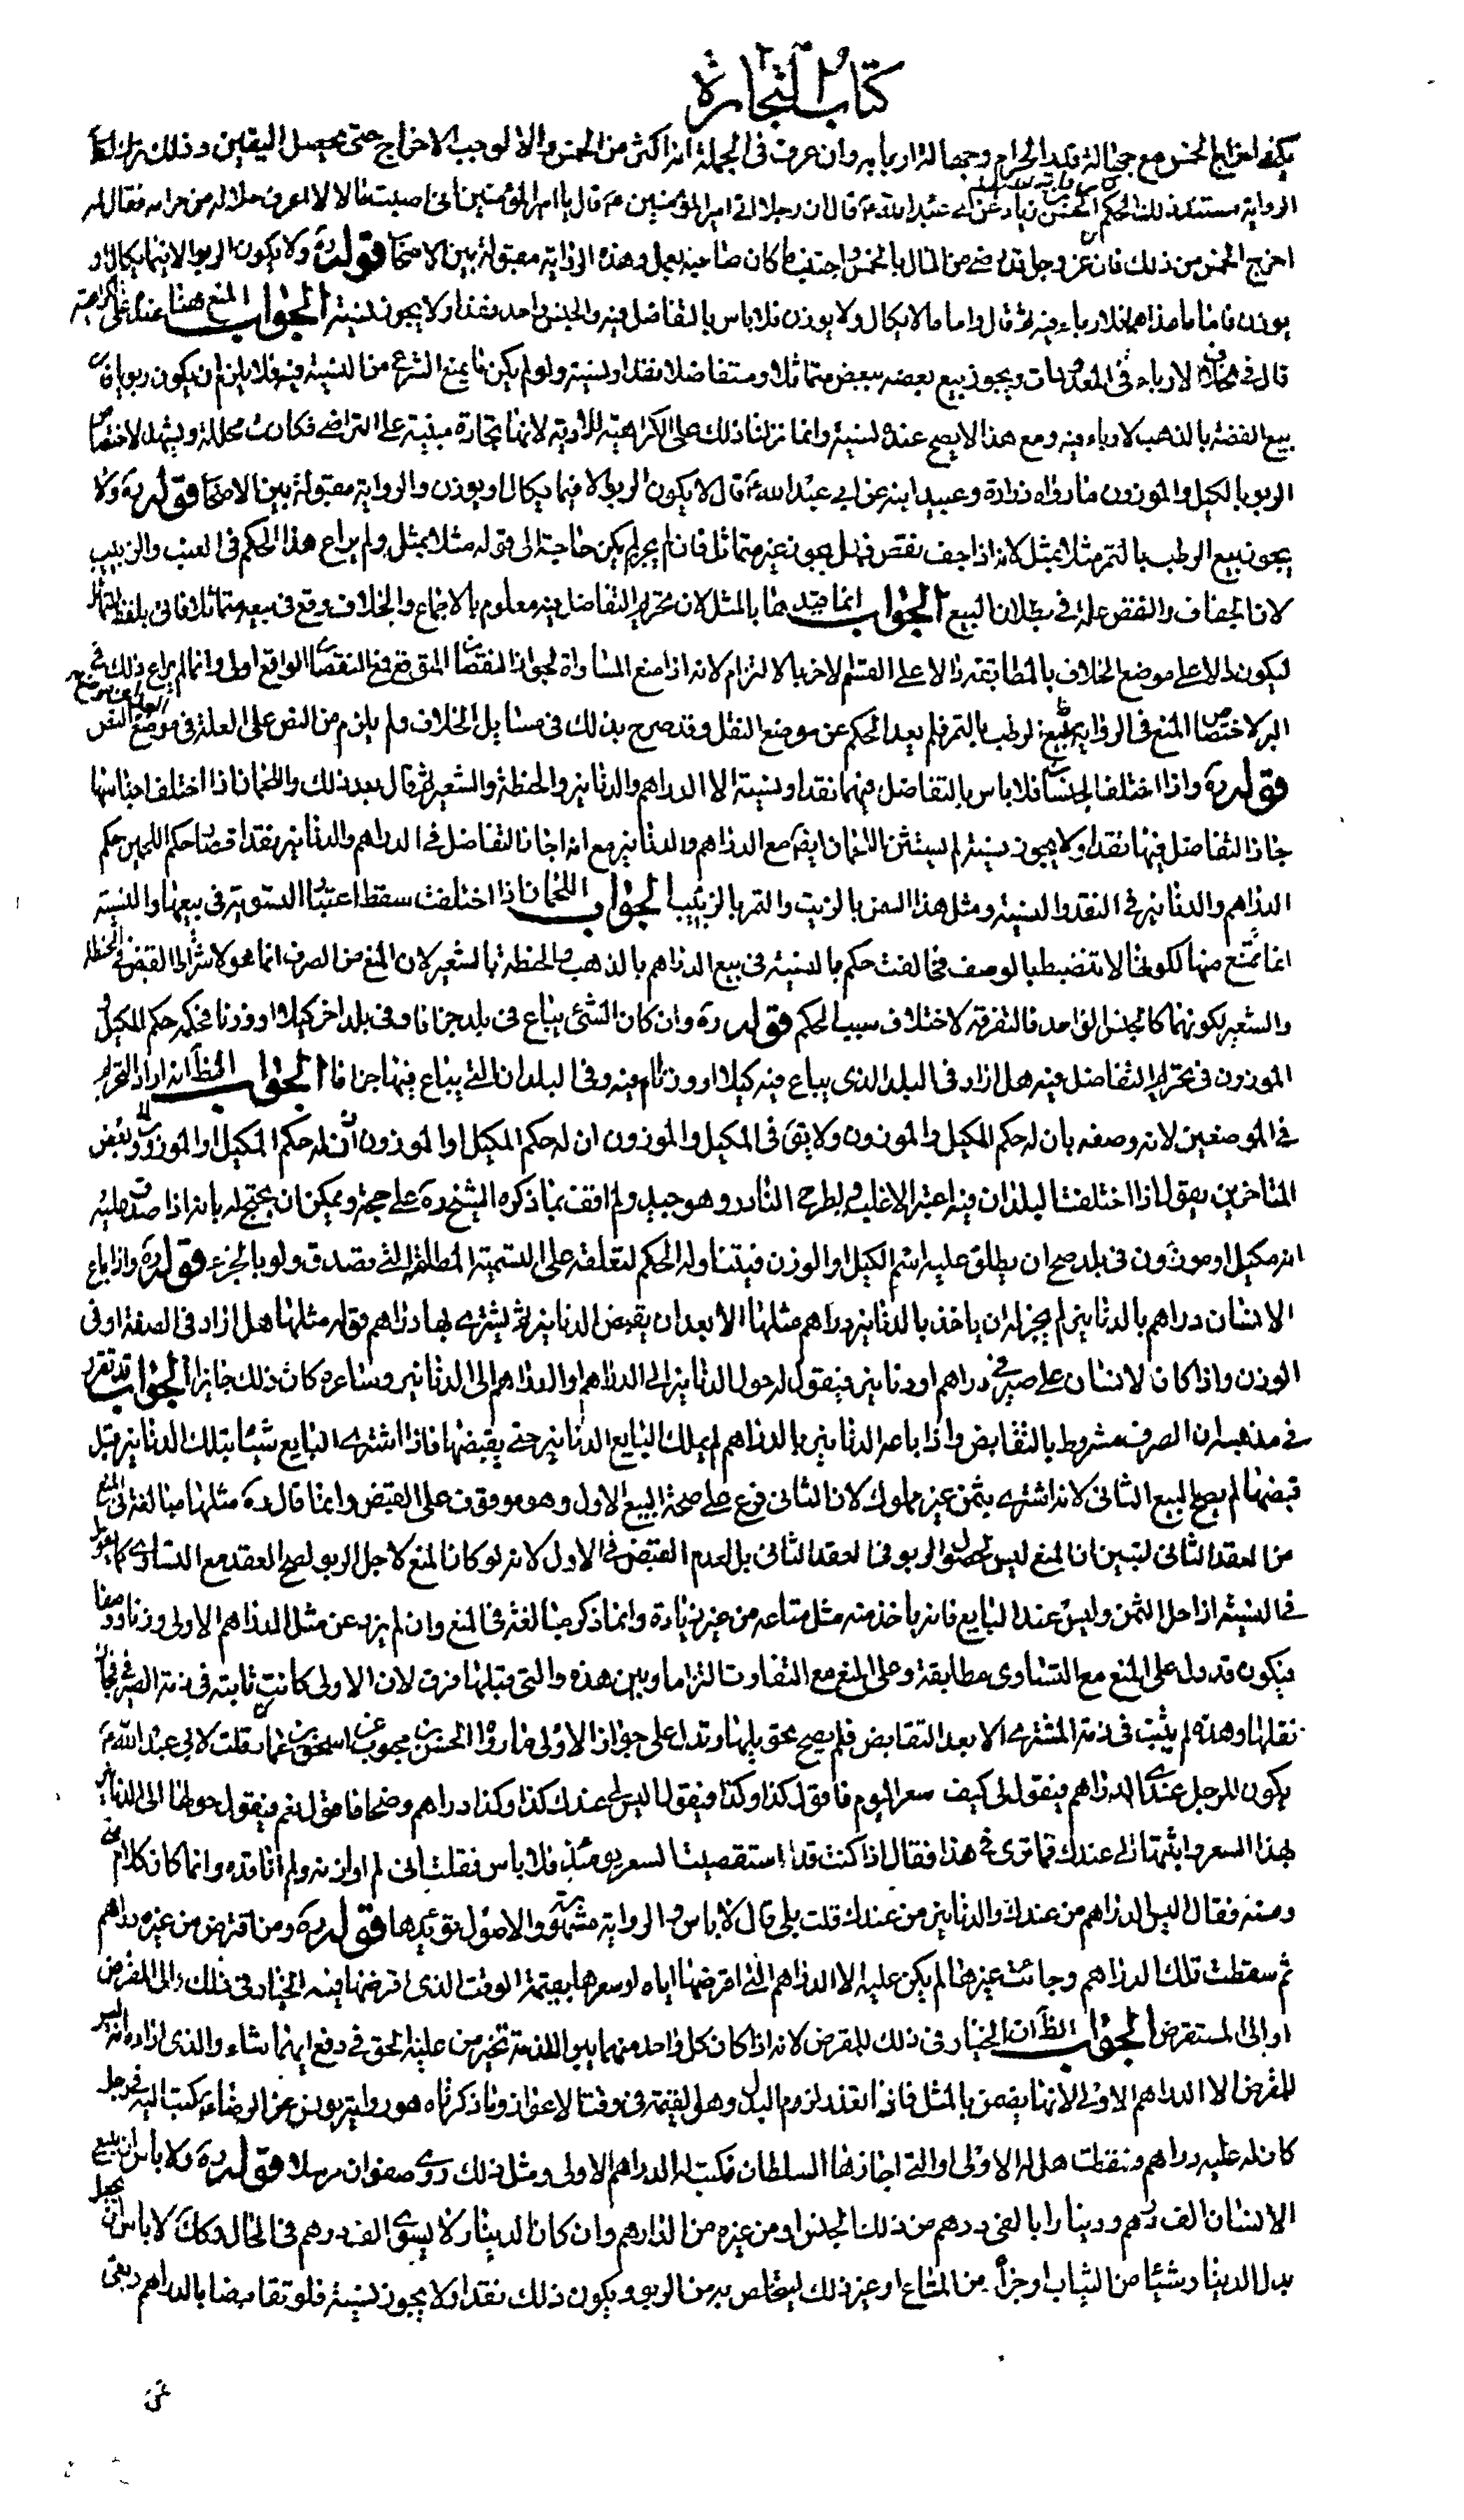 كتاب التجارة
اخراج الخمس مع جهالة قدر الحرام وجهالة اربابه وان عرف فى الجملة انه اكثر من الخمس والا لوجب الاخراج حتى يحصل اليقين وذلك
الرواية مستند ذلك الحكم الحسن زياد عن ابى عبد الله ع قال ان رجلا اتى امير المؤمنين ع قال يا امير المؤمنين انى اصبت مالا لا اعرف حلاله من حرامه فقال له
اخرج الخمس من ذلك فان عز وجل قد رضى من المال بالخمس واجتنب ما كان صاحبه يعمل وهذه الرواية مقبولة بين الاصحاب قوله ره ولا يكون الربوا الا فيما يكال او
يوزن فاما ما عداهما فلا رباء فيه ثم قال واما ما لا يكال ولا يوزن فلا باس بالتفاضل فيه والجنس واحد نقدا ولا يجوز نسيئة الجواب المنع هنا عندى على الكراهية
قال فى لا رباء فى المعدودات ويجوز بيع بعضه ببعض متماثلا ومتفاضلا نقدا ونسيئة ولو لم يكن يمنع الشرع من النسيئة فيه فلا يلزم ان يكون ربوا فان
بيع الفضة بالذهب لا رباء فيه ومع هذا لا يصح عنده نسيئة وانما نزلنا ذلك على الكراهية للاية لانها تجارة مبنية على التراضى فكانت محللة ويشهد لاختصاص
الربو بالكيل والموزون ما رواه زرارة وعبيد ابنه عن ابى عبد الله ع قال لا يكون الربوا الا فيما يكال او يوزن والرواية مقبولة بين الاصحاب قوله ره ولا
يجوز بيع الرطب بالتمر مثلا بمثل لانه اذا جف نقص فهل يجوز غير متماثل فان لم يجز لم يكن حاجة الى قوله مثلا بمثل ولم يراع هذا الحكم فى العنب والزبيب
لان الجفاف والنقص علة فى بطلان البيع الجواب انما قيدها بالمثل لان تحريم التفاضل فيه معلوم بالاجماع والخلاف وقع فى بيعه متماثلا فاتى بلفظ التماثل
ليكون دالا على موضع الخلاف بالمطابقة دالا على القسم الاخر بالالتزام لانه اذا منع المساواة لجواز النقصان المتوقع فمع النقصان الواقع اولى وانما لم يراع ذلك فى
البر لاختصاص المنع فى الرواية ببيع الرطب بالتمر فلم يعد الحكم عن موضع النقل وقد صرح بذلك فى مسايل الخلاف ولم يلزم من النص على العلة فى موضع النص
قوله ره واذا اختلف الجنسان فلا باس بالتفاضل فيهما نقدا ونسيئة الا الدراهم والدنانير والحنطة والشعير ثم قال بعد ذلك واللحمان اذا اختلف اجناسها
جاز التفاضل فيها نقدا ولا يجوز نسيئة لم يستثن اللحمان ايضا مع الدراهم والدنانير مع انه اجاز التفاضل فى الدراهم والدنانير نقدا فصار حكم اللحمين حكم
الدراهم والدنانير فى النقد والنسيئة ومثل هذا السمن بالزيت والتمر بالزبيب الجواب اللحمان اذا اختلفت سقط اعتبار التسوية فى بيعها والنسيئة
انما تمنع منها لكونها لا تنضبط بالوصف فخالفت حكم بالنسيئة فى بيع الدراهم بالذهب والحنطة بالشعير لان المنع من الصرف انما هو لاشتراط القبض فى الحنطة
والشعير لكونهما كالجنس الواحد فالتفرقة لاختلاف سبب الحكم قوله ره وان كان الشئ يباع فى بلد جزافا وفى بلد اخر كيلا او وزنا فحكمه حكم المكيل و
الموزون فى تحريم التفاضل فيه هل اراد فى البلد الذى يباع فيه كيلا او وزنا ام فيه وفى البلدان التى يباع فيها جزافا الجواب الظ انه اراد التحريم
فى الموضعين لانه وصفه بان له حكم المكيل والموزون ولا يبقى فى المكيل والموزون ان له حكم المكيل او الموزون ان له حكم المكيل او الموزون وبعض
المتاخرين يقول اذا اختلفت البلدان فيه اعتبر الاغلب ويطرح النادر وهو جيد ولم اقف بما ذكره الشيخ ره على حجة ويمكن ان يحتج له بانه اذا صدق عليه
انه مكيل او موزون فى بلد صح ان يطلق عليه اسم الكيل او الوزن فيتناوله الحكم لتعلقه على التسمية المطلقة التى تصدق ولو بالجزء قوله ره واذا باع
الانسان دراهم بالدنانير لم يجز له ان ياخذ بالدنانير دراهم مثلها الا بعد ان يقبض الدنانير ثم يشترى بها دراهم قوله مثلها هل اراد فى الصفة او فى
الوزن واذا كان لانسان على صيرفى دراهم او دنانير فيقول له حول الدنانير الى الدراهم او الدراهم الى الدنانير وساعره كان ذلك جايزا الجواب قد تقرر
فى مذهبه ان الصرف مشروط بالتقابض واذا باعه الدنانير بالدراهم لم يملك البايع الدنانير حتى يقبضها فاذا اشترى البايع شيئا بتلك الدنانير قبل
قبضها لم يصح البيع الثانى لانه اشترى بثمن غير مملوك لان الثانى فرع على صحة البيع الاول وهو موقوف على القبض وانما قال ره مثلها مبالغة فى المنع
من العقد الثانى ليتبين ان المنع ليس لحصول الربو فى العقد الثانى بل لعدم القبض فى الاول لانه لو كان المنع لاجل الربو لصح العقد مع التساوى كما يقول
فى النسيئة اذا حل الثمن وليس عند البايع فانه ياخذ منه مثل متاعه من غير زيادة وانما ذكر مبالغة فى المنع وان لم يزد عن مثل الدراهم الاولى وزنا ووصفا
فيكون قد دل على المنع مع التساوى مطابقة وعلى المنع مع التفاوت التزاما وبين هذه والتى قبلها فرق لان الاولى كانت ثابتة فى ذمة الصيرفى فجاز
نقلها وهذه لم يثبت فى ذمة المشترى الا بعد التقابض فلم يصح تحويلها وتدل على جواز الاولى ما رواه الحسن بن محبوب عن اسحق بن عمار قلت لابى عبد الله ع
يكون للرجل عندى الدراهم فيقول لى كيف سعر اليوم فاقول كذا وكذا فيقول اليس لى عندك كذا وكذا دراهم وضحا فاقول نعم فيقول حولها الى الدنانير
بهذا السعر واثبتها لى عندك فما ترى فى هذا فقال اذا كنت قد استقصيت السعر يومئذ فلا باس فقلت انى لم اوازنه ولم اناقده وانما كان كلام منى
ومنه فقال اليس الدراهم من عندك والدنانير من عندك قلت بلى قال لا باس والرواية مشهورة والاصول تؤيدها قوله ره ومن اقترض من غيره دراهم
ثم سقطت تلك الدراهم وجائت غيرها لم يكن عليه الا الدراهم التى اقرضها اياه او سعرها بقيمة الوقت الذى اقرضها فيه الخيار فى ذلك الى المقرض
او الى المستقرض الجواب الظ ان الخيار فى ذلك للمقرض لانه اذا كان كل واحد منهما يبرا الذمة تخير من عليه الحق فى دفع ايهما شاء والذى اراده انه ليس
للمقرض الا الدراهم الاولى لانها يضمن بالمثل فاذا تعذر لزم البدل وهى القيمة فى وقت الاعواز وما ذكرناه هو رواية يونس عن الرضا ع كتبت اليه فى رجل
كان له عليه دراهم فسقطت هل له الاولى او التى اجازها السلطان فكتب له الدراهم الاولى ومثل ذلك روى صفوان مرسلا قوله ره ولا باس ان يبيع
الانسان الف درهم ودينارا بالفى درهم من ذلك الجنس او من غيره من الدراهم وان كان الدينار لا يسوى الف درهم فى الحال وكك لا باس ان يجعل
بدل الدينار شيئا من الثياب او جزأ من المتاع او غير ذلك ليتخلص به من الربو ويكون ذلك نقدا ولا يجوز نسيئة فلو تقابضا بالدراهم وبقى